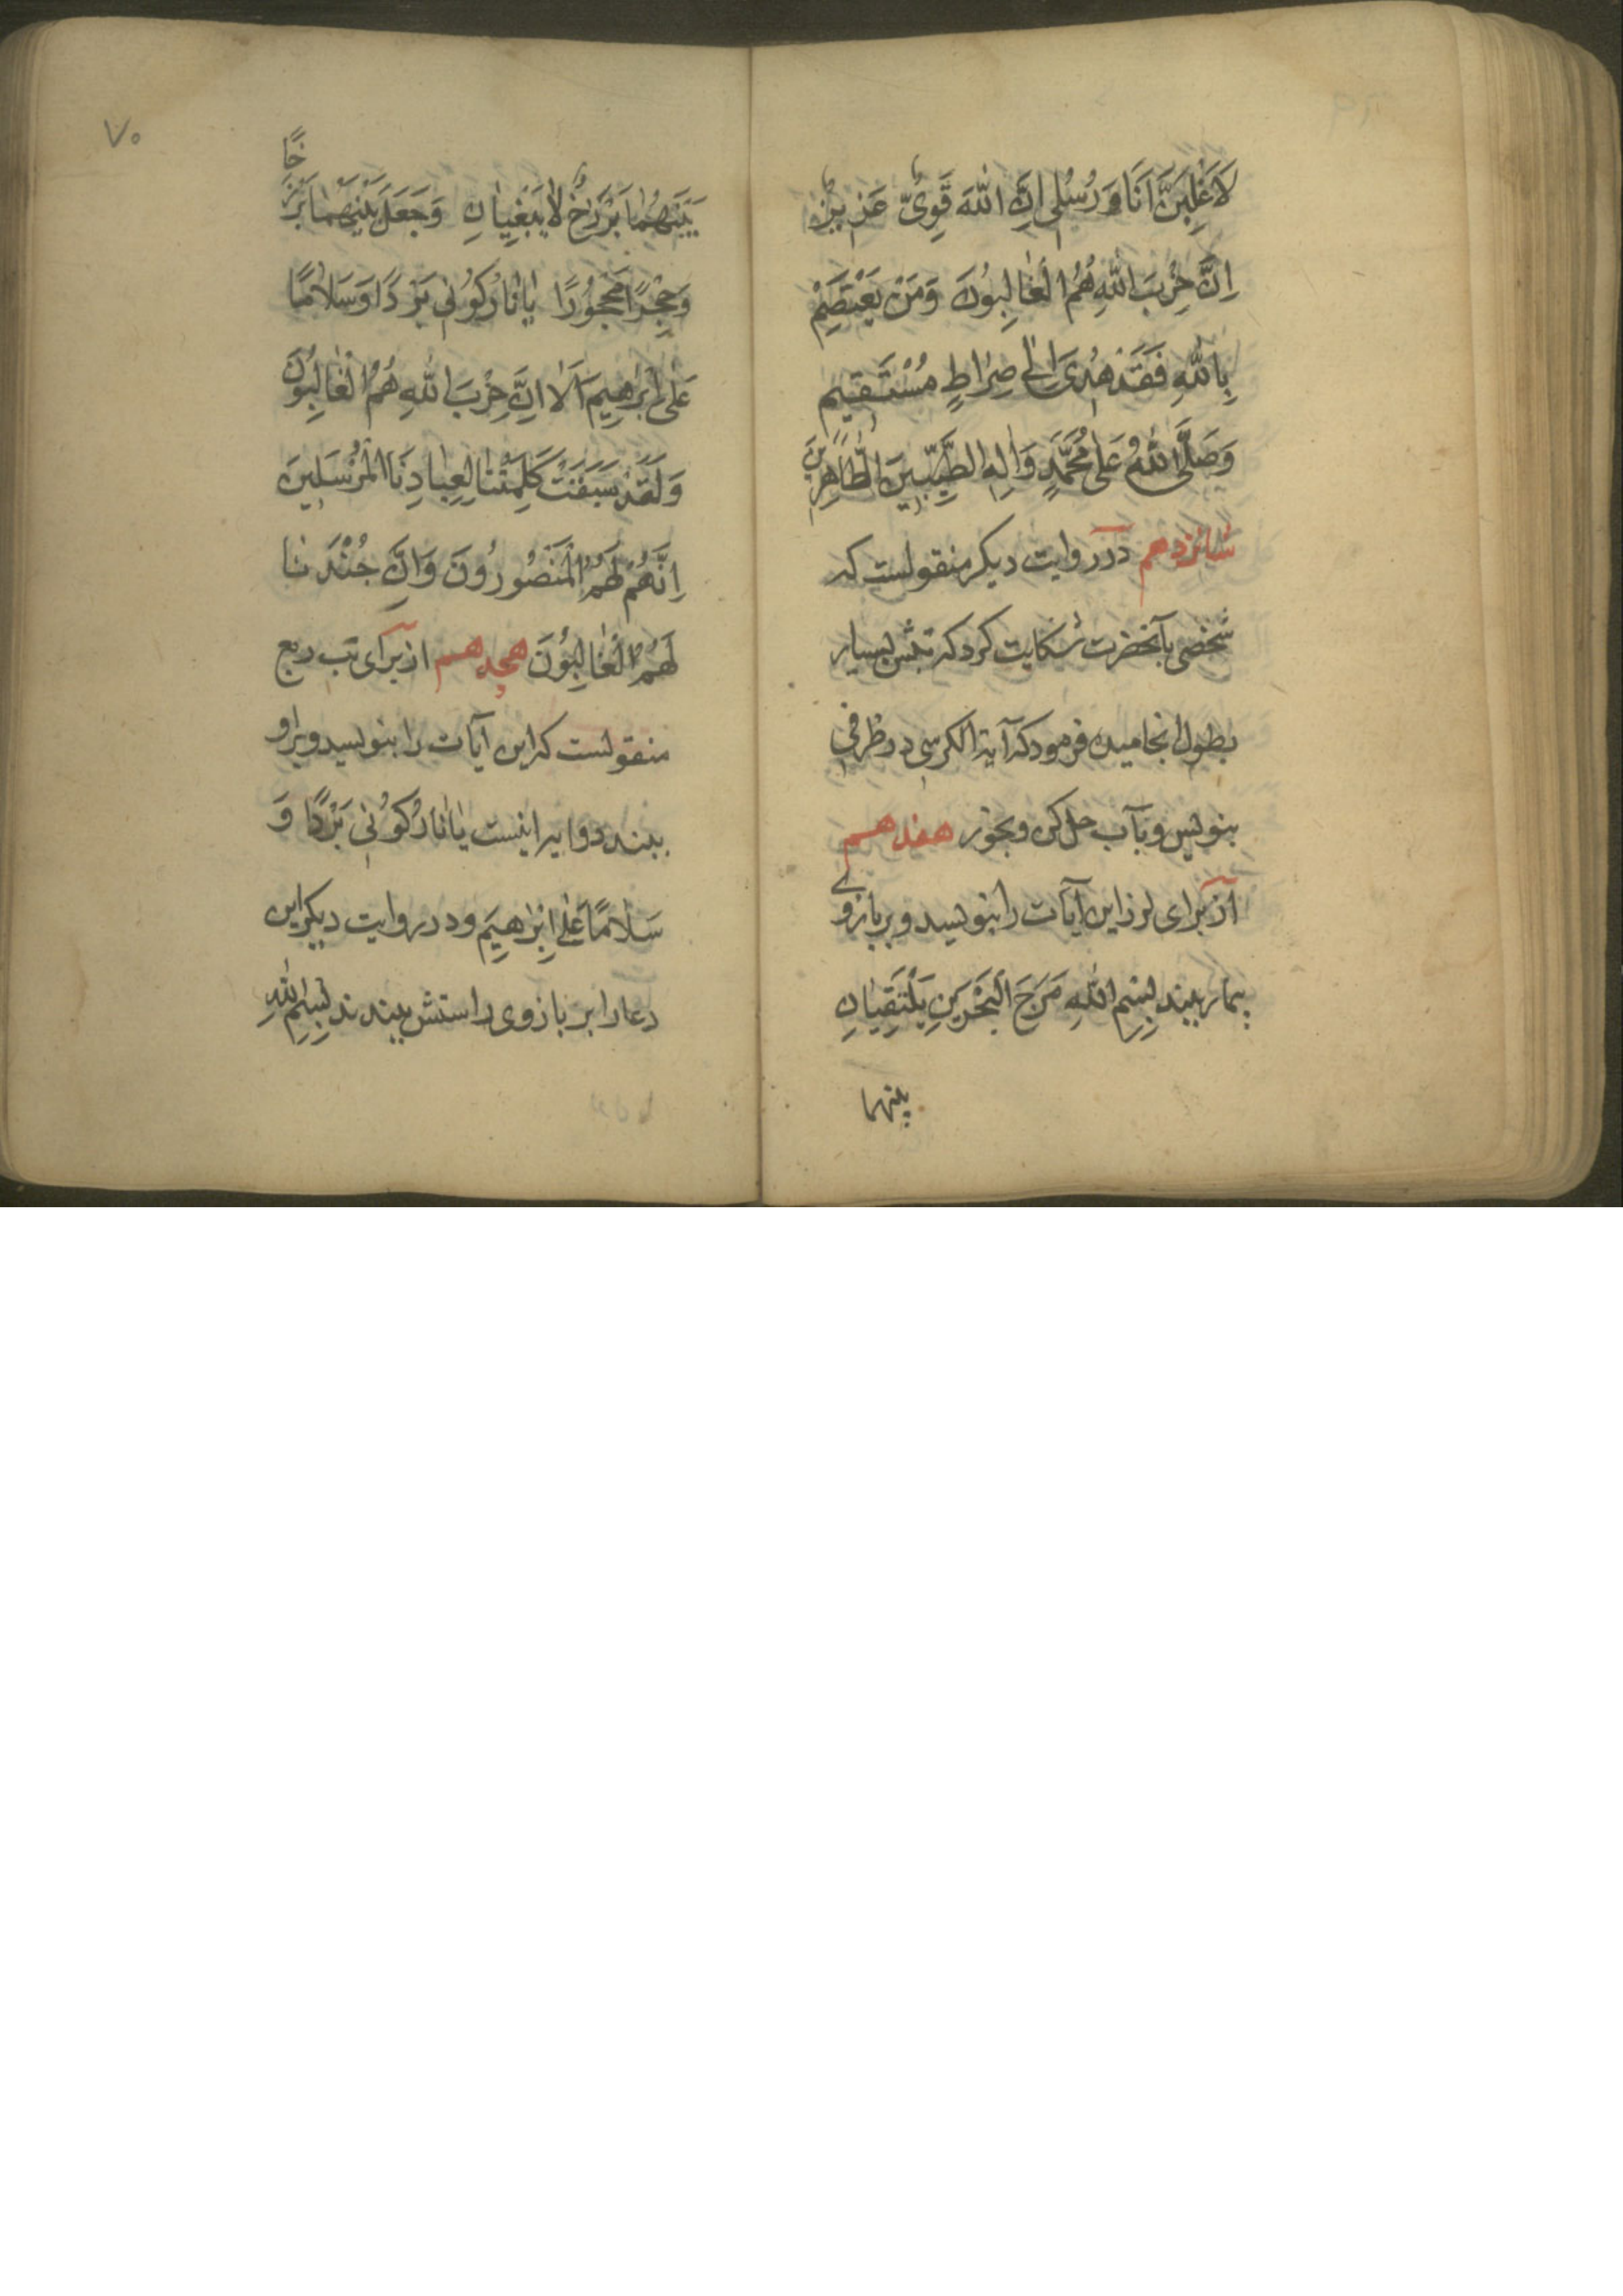 لَاَغْلِبَنَّ اَنَا وَ رُسُلی اِنَّ اللّٰهَ قَوِیٌّ عَزیزٌ
اِنَّ حِزْبَ اللّٰهِ هُمُ الْغٰالِبُونَ وَمَنْ یَعْتَصِمْ
بِاللّٰهِ فَقَدْ هُدِیَ اِلٰی صِرٰاطٍ مُسْتَقیمٍ
وَصَلَّی اللّٰهُ عَلٰی مُحَمَّدٍ وَاٰلِهِ الطَّیِّبینَ الطّٰاهِرینَ
شانزدهم در روایت دیکر منقولست که
شخصی بآنحضرت شکایت کرد که تبش بسیار
بطول انجامیده فرمود که آیة الکرسی در ظرفی
بنویس و بآب حل کن و بخور هفدهم
از برای لرز این آیات را بنویسد و بر بازوی
بیمار ببندد بِسْمِ اللّٰهِ مَرَجَ الْبَحْرَیْنِ یَلْتَقِیٰانِ
بینهما
۷۰
بَیْنَهُمٰا بَرْزَخٌ لٰا یَبْغِیٰانِ وَجَعَلَ بَیْنَهُمٰا بَرْزَخًا
وَحِجْرًا مَحْجُورًا یٰا نٰارُ کُونی بَرْدًا وَسَلٰامًا
عَلٰی اِبْرٰهِیمَ اَلٰا اِنَّ حِزْبَ اللّٰهِ هُمُ الْغٰالِبُونَ
وَلَقَدْ سَبَقَتْ کَلِمَتُنٰا لِعِبٰادِنَا الْمُرْسَلینَ
اِنَّهُمْ لَهُمُ الْمَنْصُورُونَ وَاِنَّ جُنْدَنٰا
لَهُمُ الْغٰالِبُونَ هجدهم از برای تب ربع
منقولست که این آیات را بنویسد و براو
ببندد و آیه اینست یٰا نٰارُ کُونی بَرْدًا وَ
سَلٰامًا عَلٰی اِبْرٰهیمَ و در روایت دیکر این
دعا را بر بازوی راستش ببندند بِسْمِ اللّٰهِ